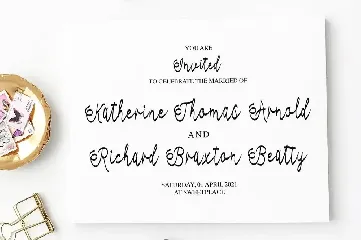 YOU ARE
Invited
TO CELEBRATE THE MARRIED OF
Katherine Thomas Arnold
AND
Richard Braxton Beatty
SATURDAY, 01 APRIL 2021
AT